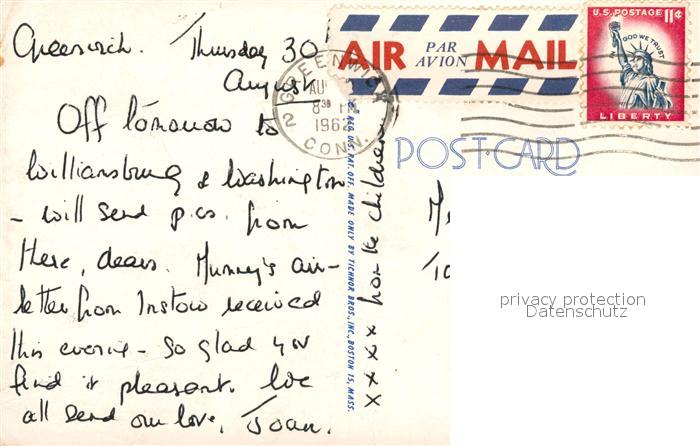 Greenwich. Thursday 30
August
Off tomorrow to
Williamsburg & Washington
- will send p.cs. from
there, dears. Mummy's air-
letter from Instow received
this evening - so glad you
find it pleasant. We
all send our love, Joan.
xxxx from the children
AIR PAR AVION MAIL
U.S. POSTAGE 11¢
IN GOD WE TRUST
LIBERTY
GREENWICH
2
AU
8 30 PM
1962
CONN.
POST-CARD
REG. U.S. PAT. OFF. MADE ONLY BY TICHNOR BROS., INC., BOSTON 15, MASS.
privacy protection
Datenschutz